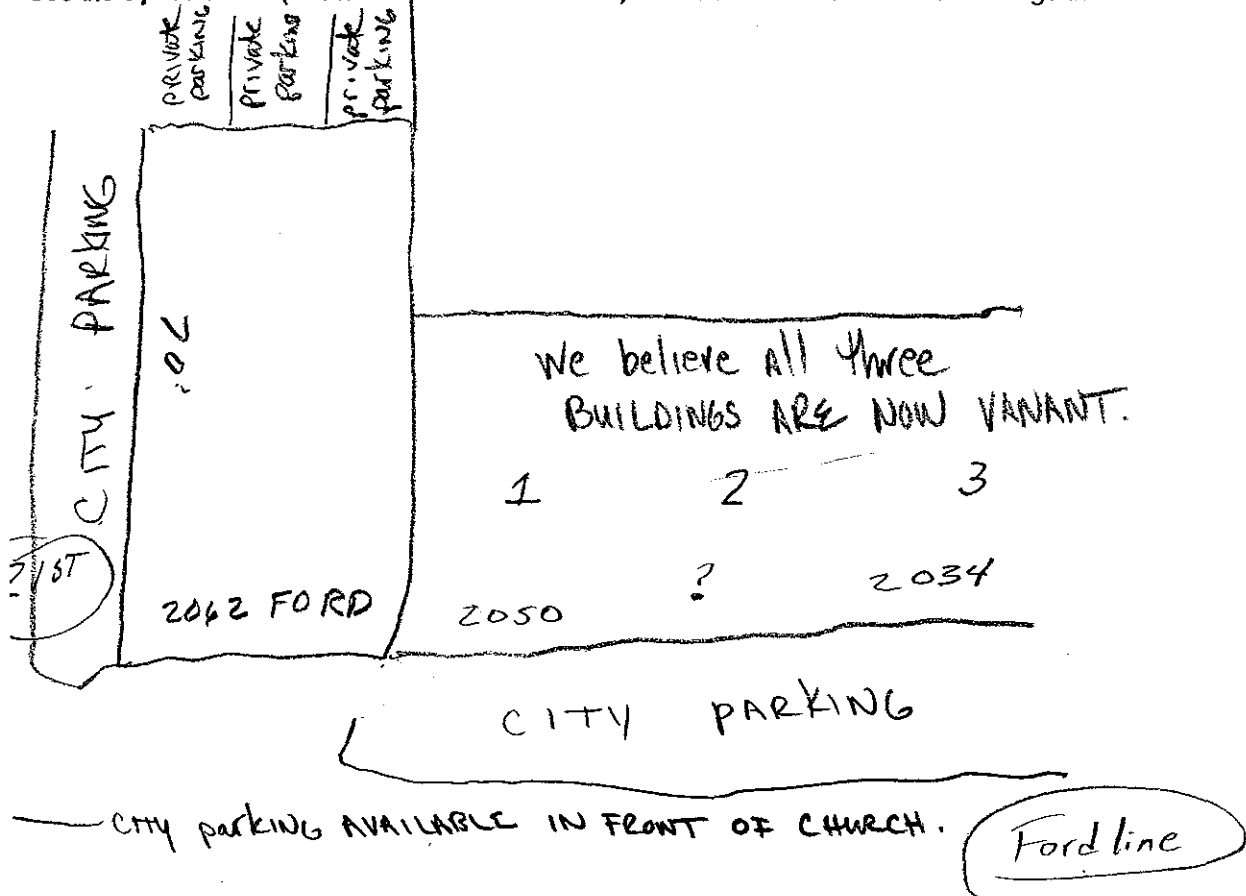 private
parking
private
parking
private
parking
CITY PARKING
70'
We believe All three
BUILDINGS ARE NOW VANANT.
1 2 3
ST
2062 FORD
2050 ? 2034
CITY PARKING
CITY parking AVAILABLE IN FRONT OF CHURCH.
Fordline